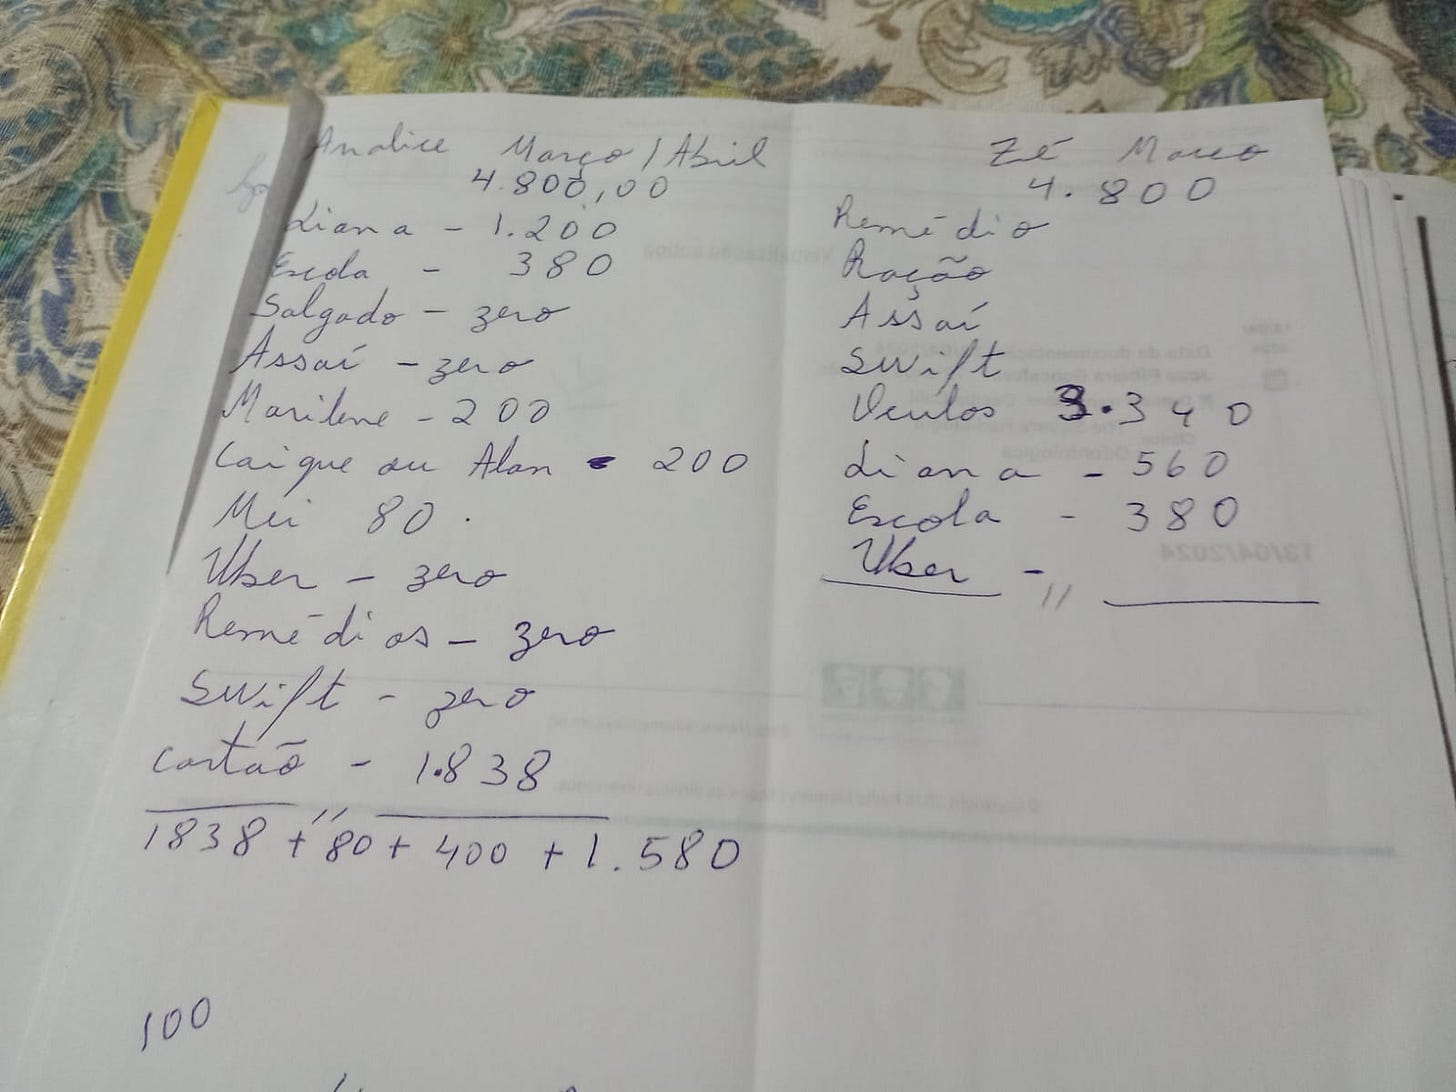 Analice Março / Abril
4.800,00
Liana - 1.200
Escola - 380
Salgado - zero
Assaí - zero
Marilene - 200
Caique ou Alan - 200
Mei 80.
Uber - zero
Remédios - zero
Swift - zero
Cartão - 1.838
1838 + 80 + 400 + 1.580
100
Zé Março
4.800
Remédio
Ração
Assaí
Swift
Óculos 3.340
Liana - 560
Escola - 380
Uber -